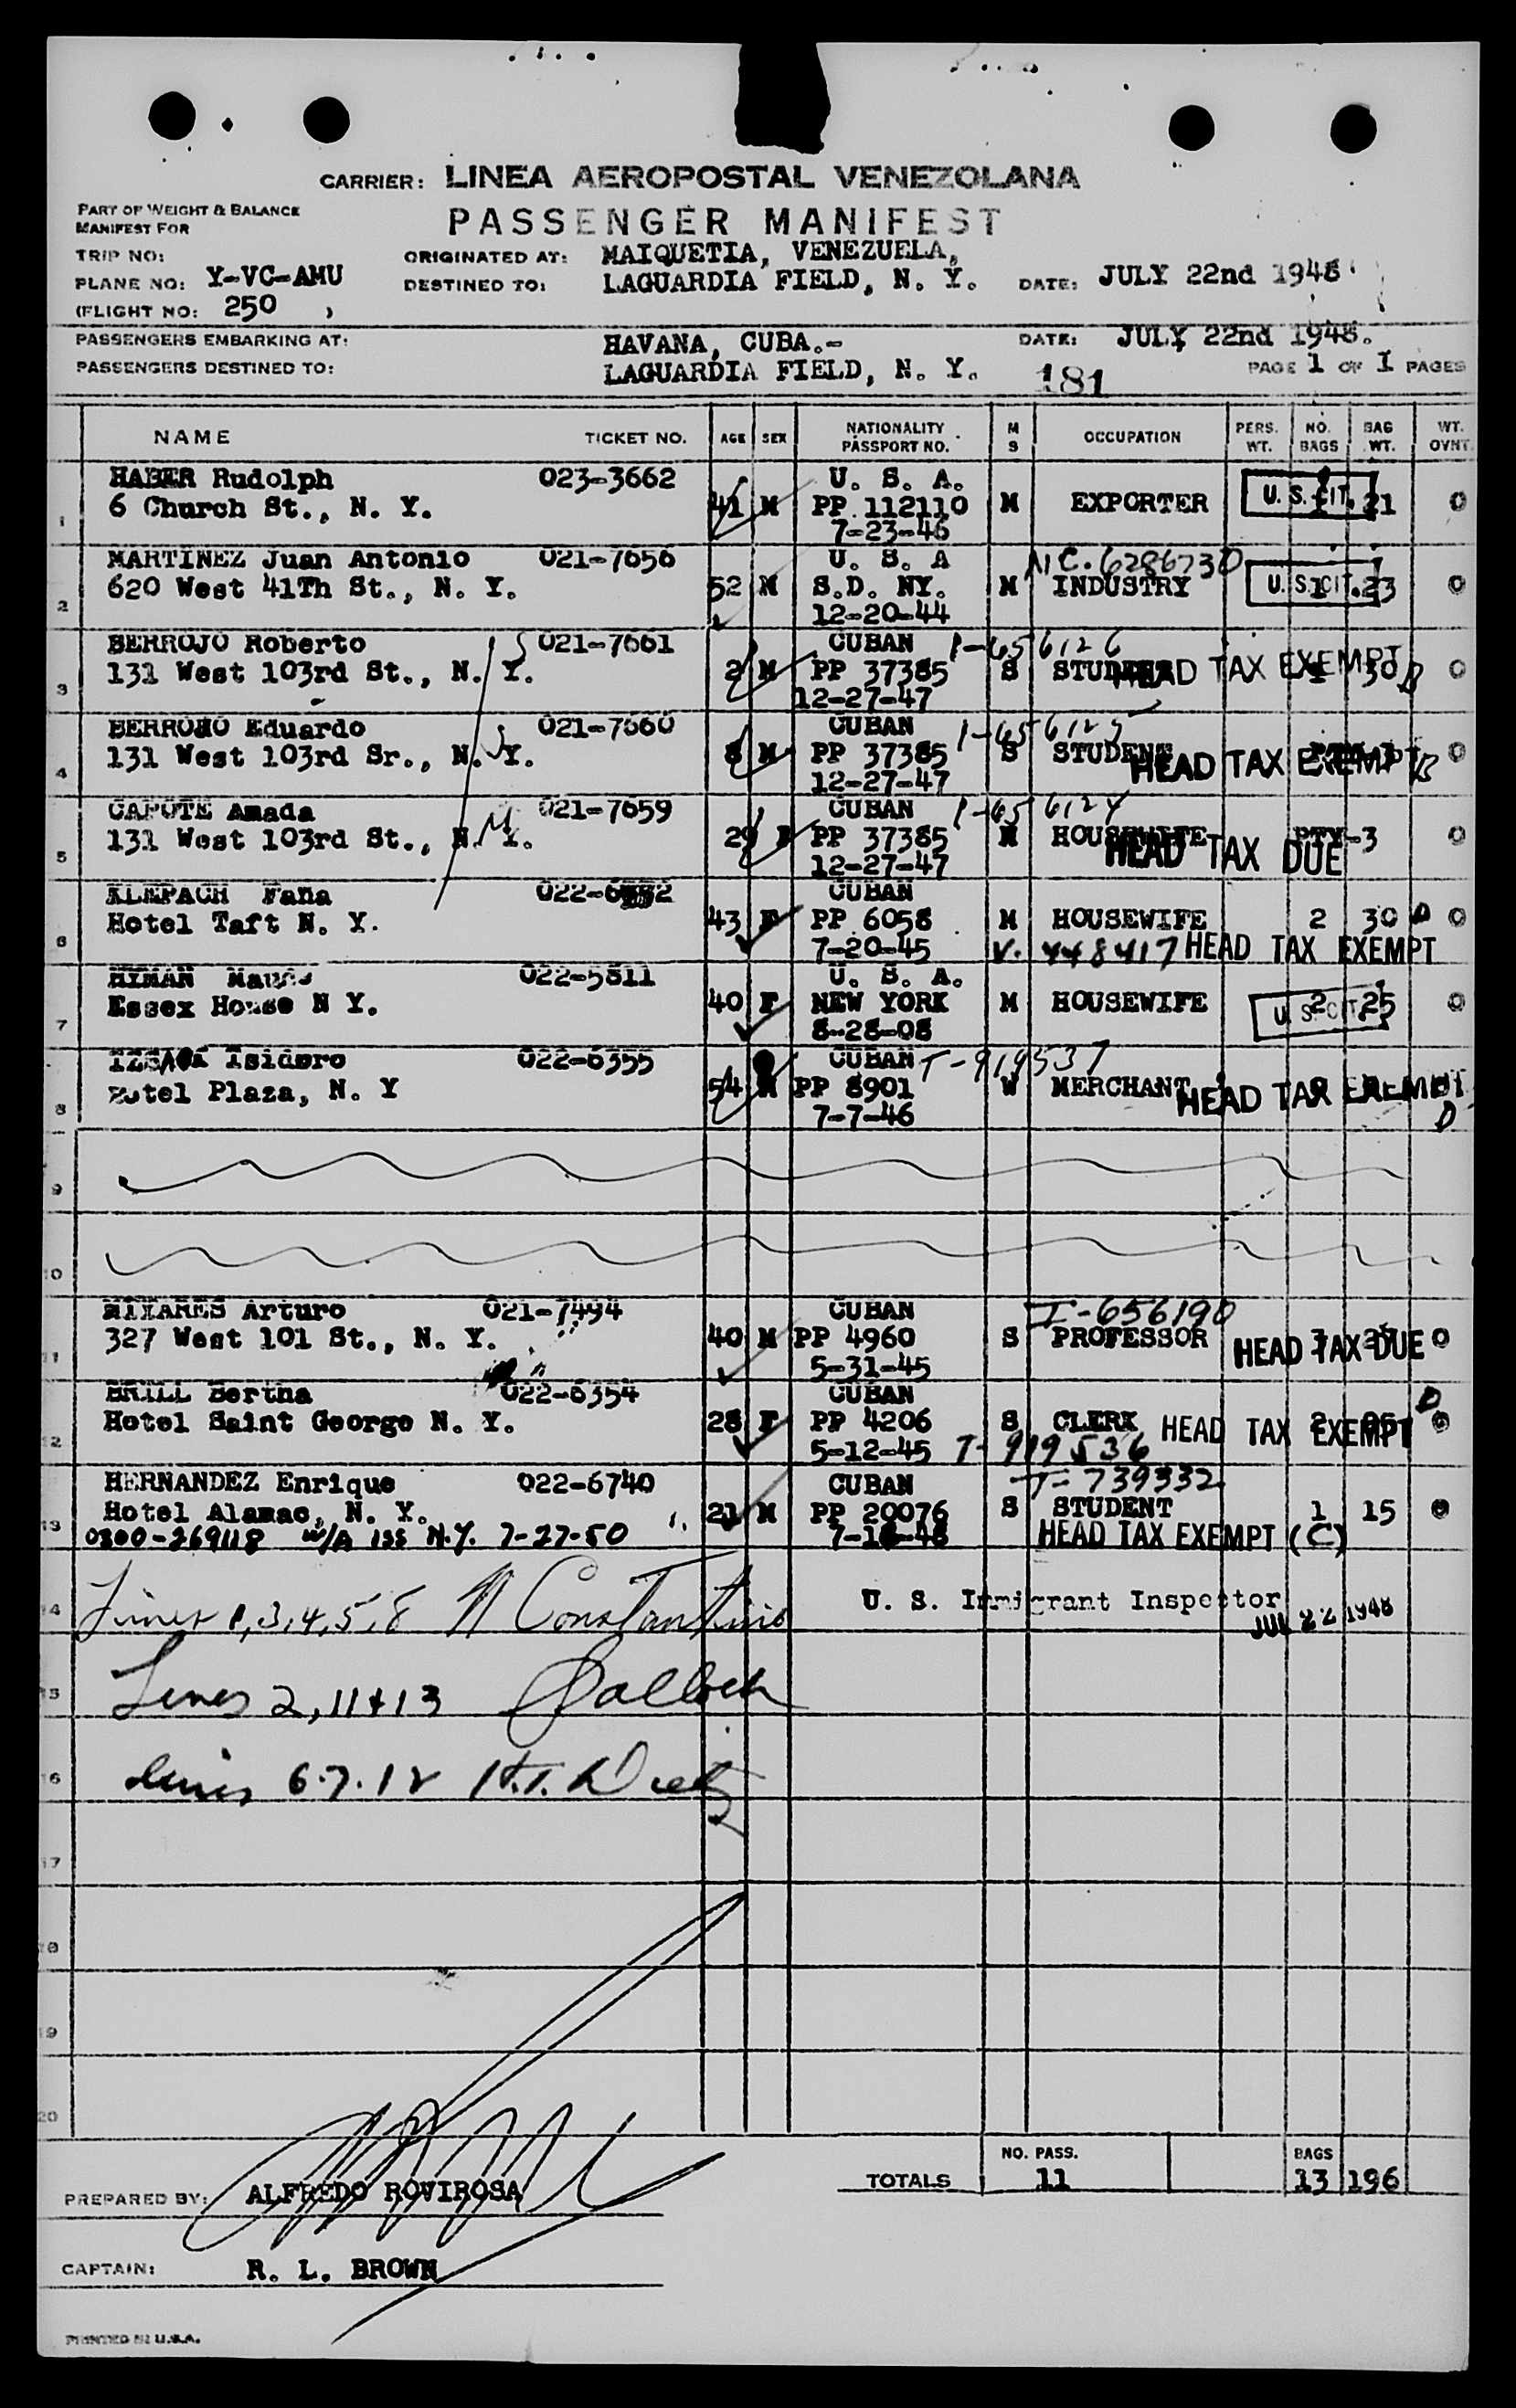 CARRIER: LINEA AEROPOSTAL VENEZOLANA
PART OF WEIGHT & BALANCE
MANIFEST FOR
PASSENGER MANIFEST
TRIP NO:
ORIGINATED AT: MAIQUETIA, VENEZUELA,
PLANE NO: Y-VC-AMU
DESTINED TO: LAGUARDIA FIELD, N. Y. DATE: JULY 22nd 1948
(FLIGHT NO: 250 )
PASSENGERS EMBARKING AT: HAVANA, CUBA.- DATE: JULY 22nd 1948.
PASSENGERS DESTINED TO: LAGUARDIA FIELD, N. Y. 181 PAGE 1 OF I PAGES
NAME TICKET NO. AGE SEX NATIONALITY PASSPORT NO. M S OCCUPATION PERS. WT. NO. BAGS BAG WT. WT. OVHT.
HABER Rudolph 023-3662 U. S. A.
1 6 Church St., N. Y. 41 M PP 112110 M EXPORTER U. S. CIT. 21 0
7-23-46
MARTINEZ Juan Antonio 021-7656 U. S. A NC. 6286730
2 620 West 41Th St., N. Y. 52 M S.D. NY. M INDUSTRY U. S. CIT. 23 0
12-20-44
BERROJO Roberto 021-7661 CUBAN I-656126
3 131 West 103rd St., N. Y. 2 M PP 37385 S STUDENT HEAD TAX EXEMPT 30 0
12-27-47
Eduardo 021-7660 CUBAN I-656125
4 131 West 103rd Sr., N. Y. 8 M PP 37385 S STUDENT HEAD TAX EXEMPT 0
12-27-47
CAPOTE Amada 021-7659 CUBAN I-656124
5 131 West 103rd St., N. Y. 29 F PP 37385 M HOUSEWIFE PTY-3 0
12-27-47 HEAD TAX DUE
KLEPACH Fana CUBAN
6 Hotel Taft N. Y. 43 F PP 6058 M HOUSEWIFE 2 30 D 0
7-20-45 V. 448417 HEAD TAX EXEMPT
HYMAN 022-5811 U. S. A.
7 Essex House N Y. 40 F NEW YORK M HOUSEWIFE U. S. CIT. 2 25 0
8-28-08
Isidoro 022-6355 CUBAN T-919537
8 Hotel Plaza, N. Y 54 M PP 8901 W MERCHANT HEAD TAX EXEMPT
7-7-46 D
9
10
MIYARES Arturo 021-7494 CUBAN I-656190
11 327 West 101 St., N. Y. 40 M PP 4960 S PROFESSOR HEAD TAX DUE 0
5-31-45
BRILL Bertha 022-6354 CUBAN D
12 Hotel Saint George N. Y. 28 F PP 4206 S CLERK HEAD TAX EXEMPT 0
5-12-45 T-919536
HERNANDEZ Enrique 022-6740 CUBAN T-739332
13 Hotel Alamac, N. Y. 21 M PP 20076 S STUDENT 1 15 0
0300-269118 W/A iss N.Y. 7-27-50 HEAD TAX EXEMPT (C)
14 Lines 1,3,4,5,8 N Constantino U. S. Immigrant Inspector JUL 22 1948
15 Lines 2, 11 + 13
16 Lines 6.7.12
17
19
20
NO. PASS. BAGS
TOTALS 11 13 196
PREPARED BY: ALFREDO ROVIROSA
CAPTAIN: R. L. BROWN
PRINTED IN U.S.A.